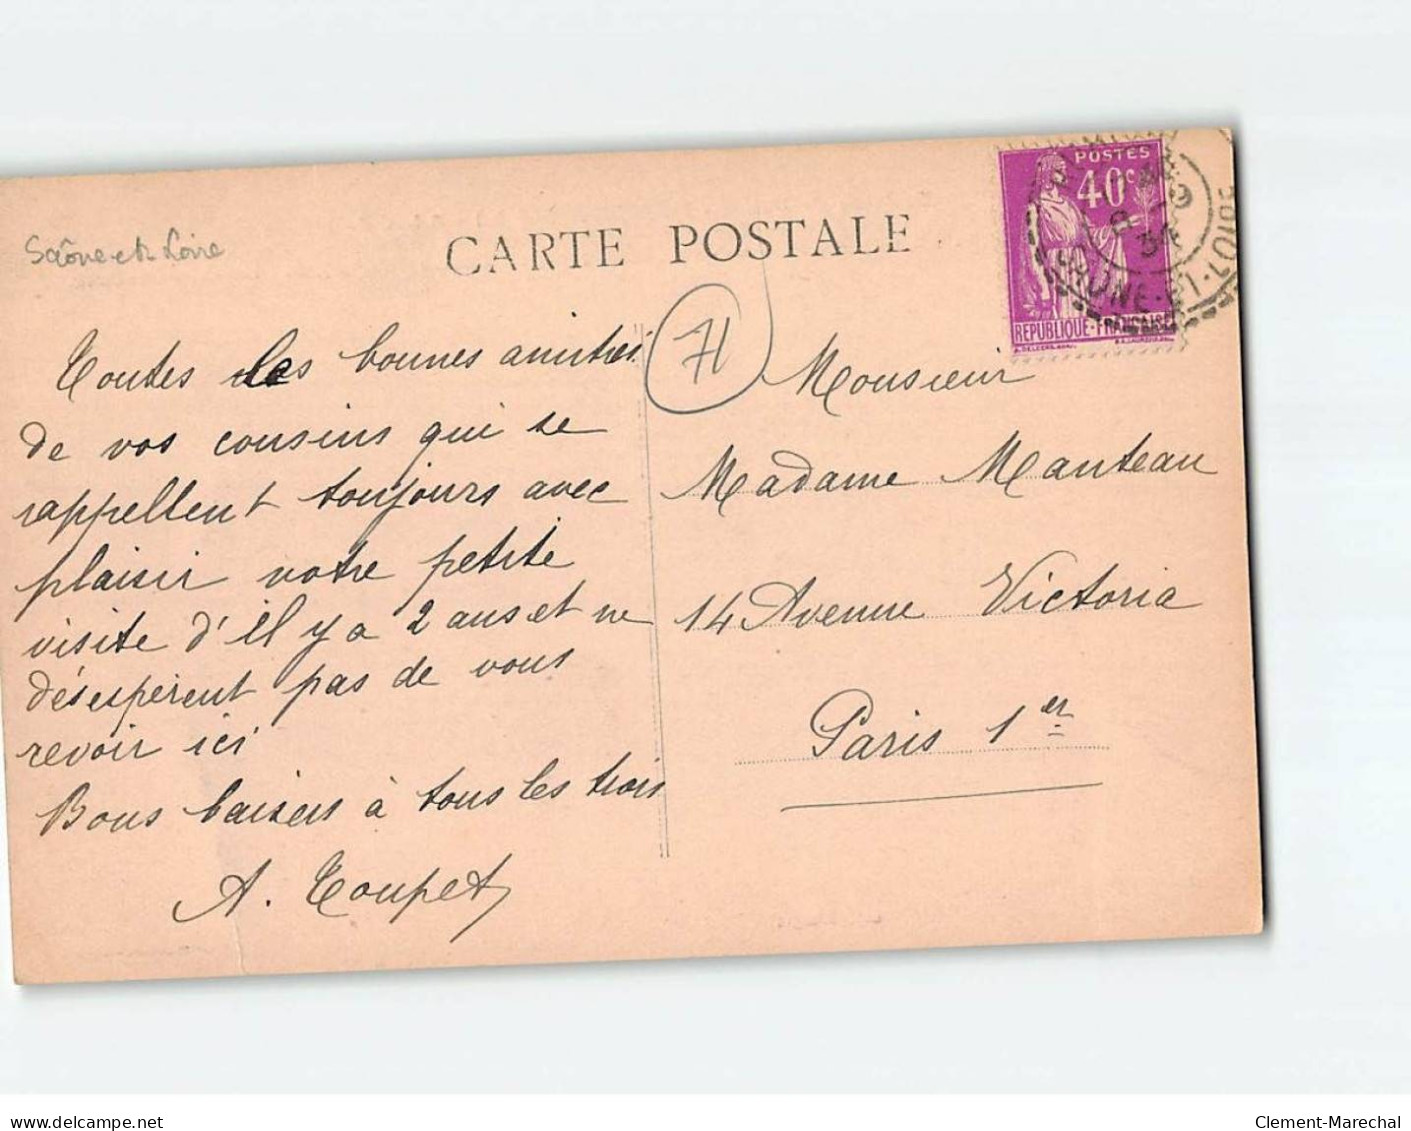 Saône et Loire
CARTE POSTALE
POSTES
40c
RÉPUBLIQUE·FRANÇAISE
9
34
SAÔNE-ET-LOIRE
71
Toutes les bonnes amitiés
de vos cousins qui se
rappellent toujours avec
plaisir votre petite
visite d'il y a 2 ans et ne
désespèrent pas de vous
revoir ici
Bons baisers à tous les trois
A. Toupet
Monsieur
Madame Manteau
14 Avenue Victoria
Paris 1er
www.delcampe.net
Clement-Marechal